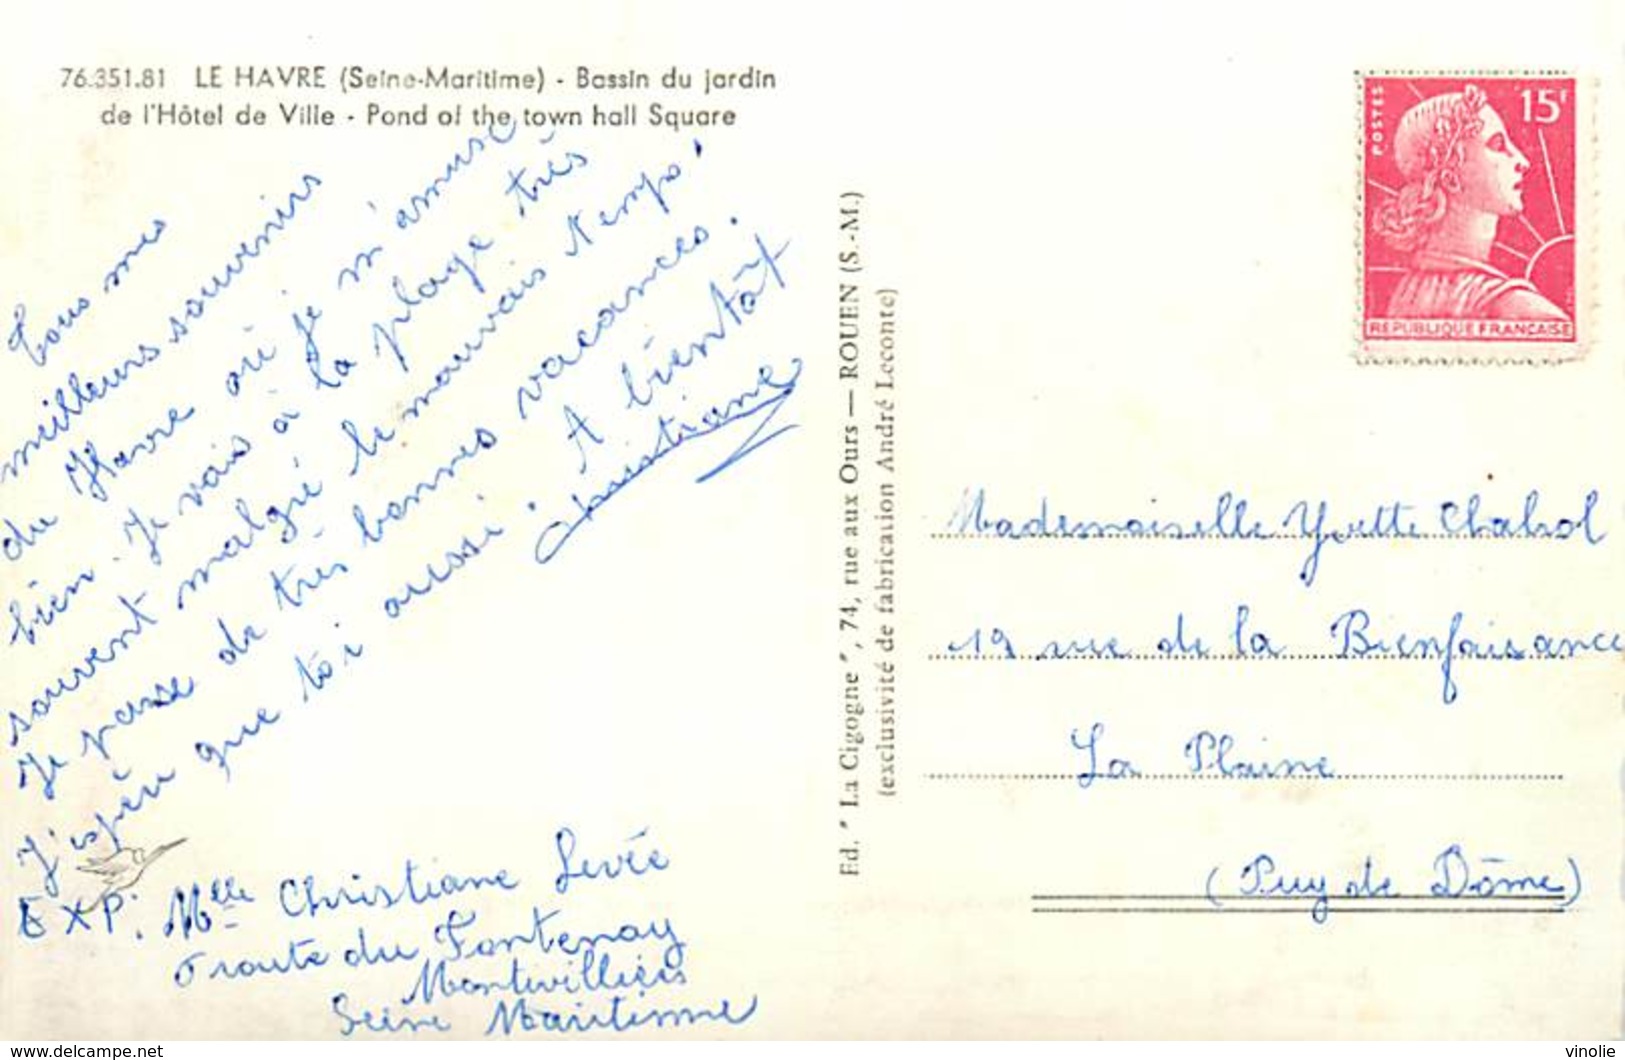 76.351.81 LE HAVRE (Seine-Maritime) - Bassin du jardin
de l'Hôtel de Ville - Pond of the town hall Square
Tous mes
meilleurs souvenirs
du Havre où je m'amuse
bien. Je vais à la plage très
souvent malgré le mauvais temps!
Je passe de très bonnes vacances.
J'espère que toi aussi. A bientôt
Christiane
EXP: Mlle Christiane Levée
route du Fontenay
Montivilliers
Seine Maritime
Ed. " La Cigogne ", 74, rue aux Ours — ROUEN (S.-M.)
(exclusivité de fabrication André Leconte)
POSTES
15F
REPUBLIQUE FRANCAISE
Mademoiselle Yvette Chabrol
19 rue de la Bienfaisance
La Plaine
(Puy de Dôme)
https://www.delcampe.net
vinolie